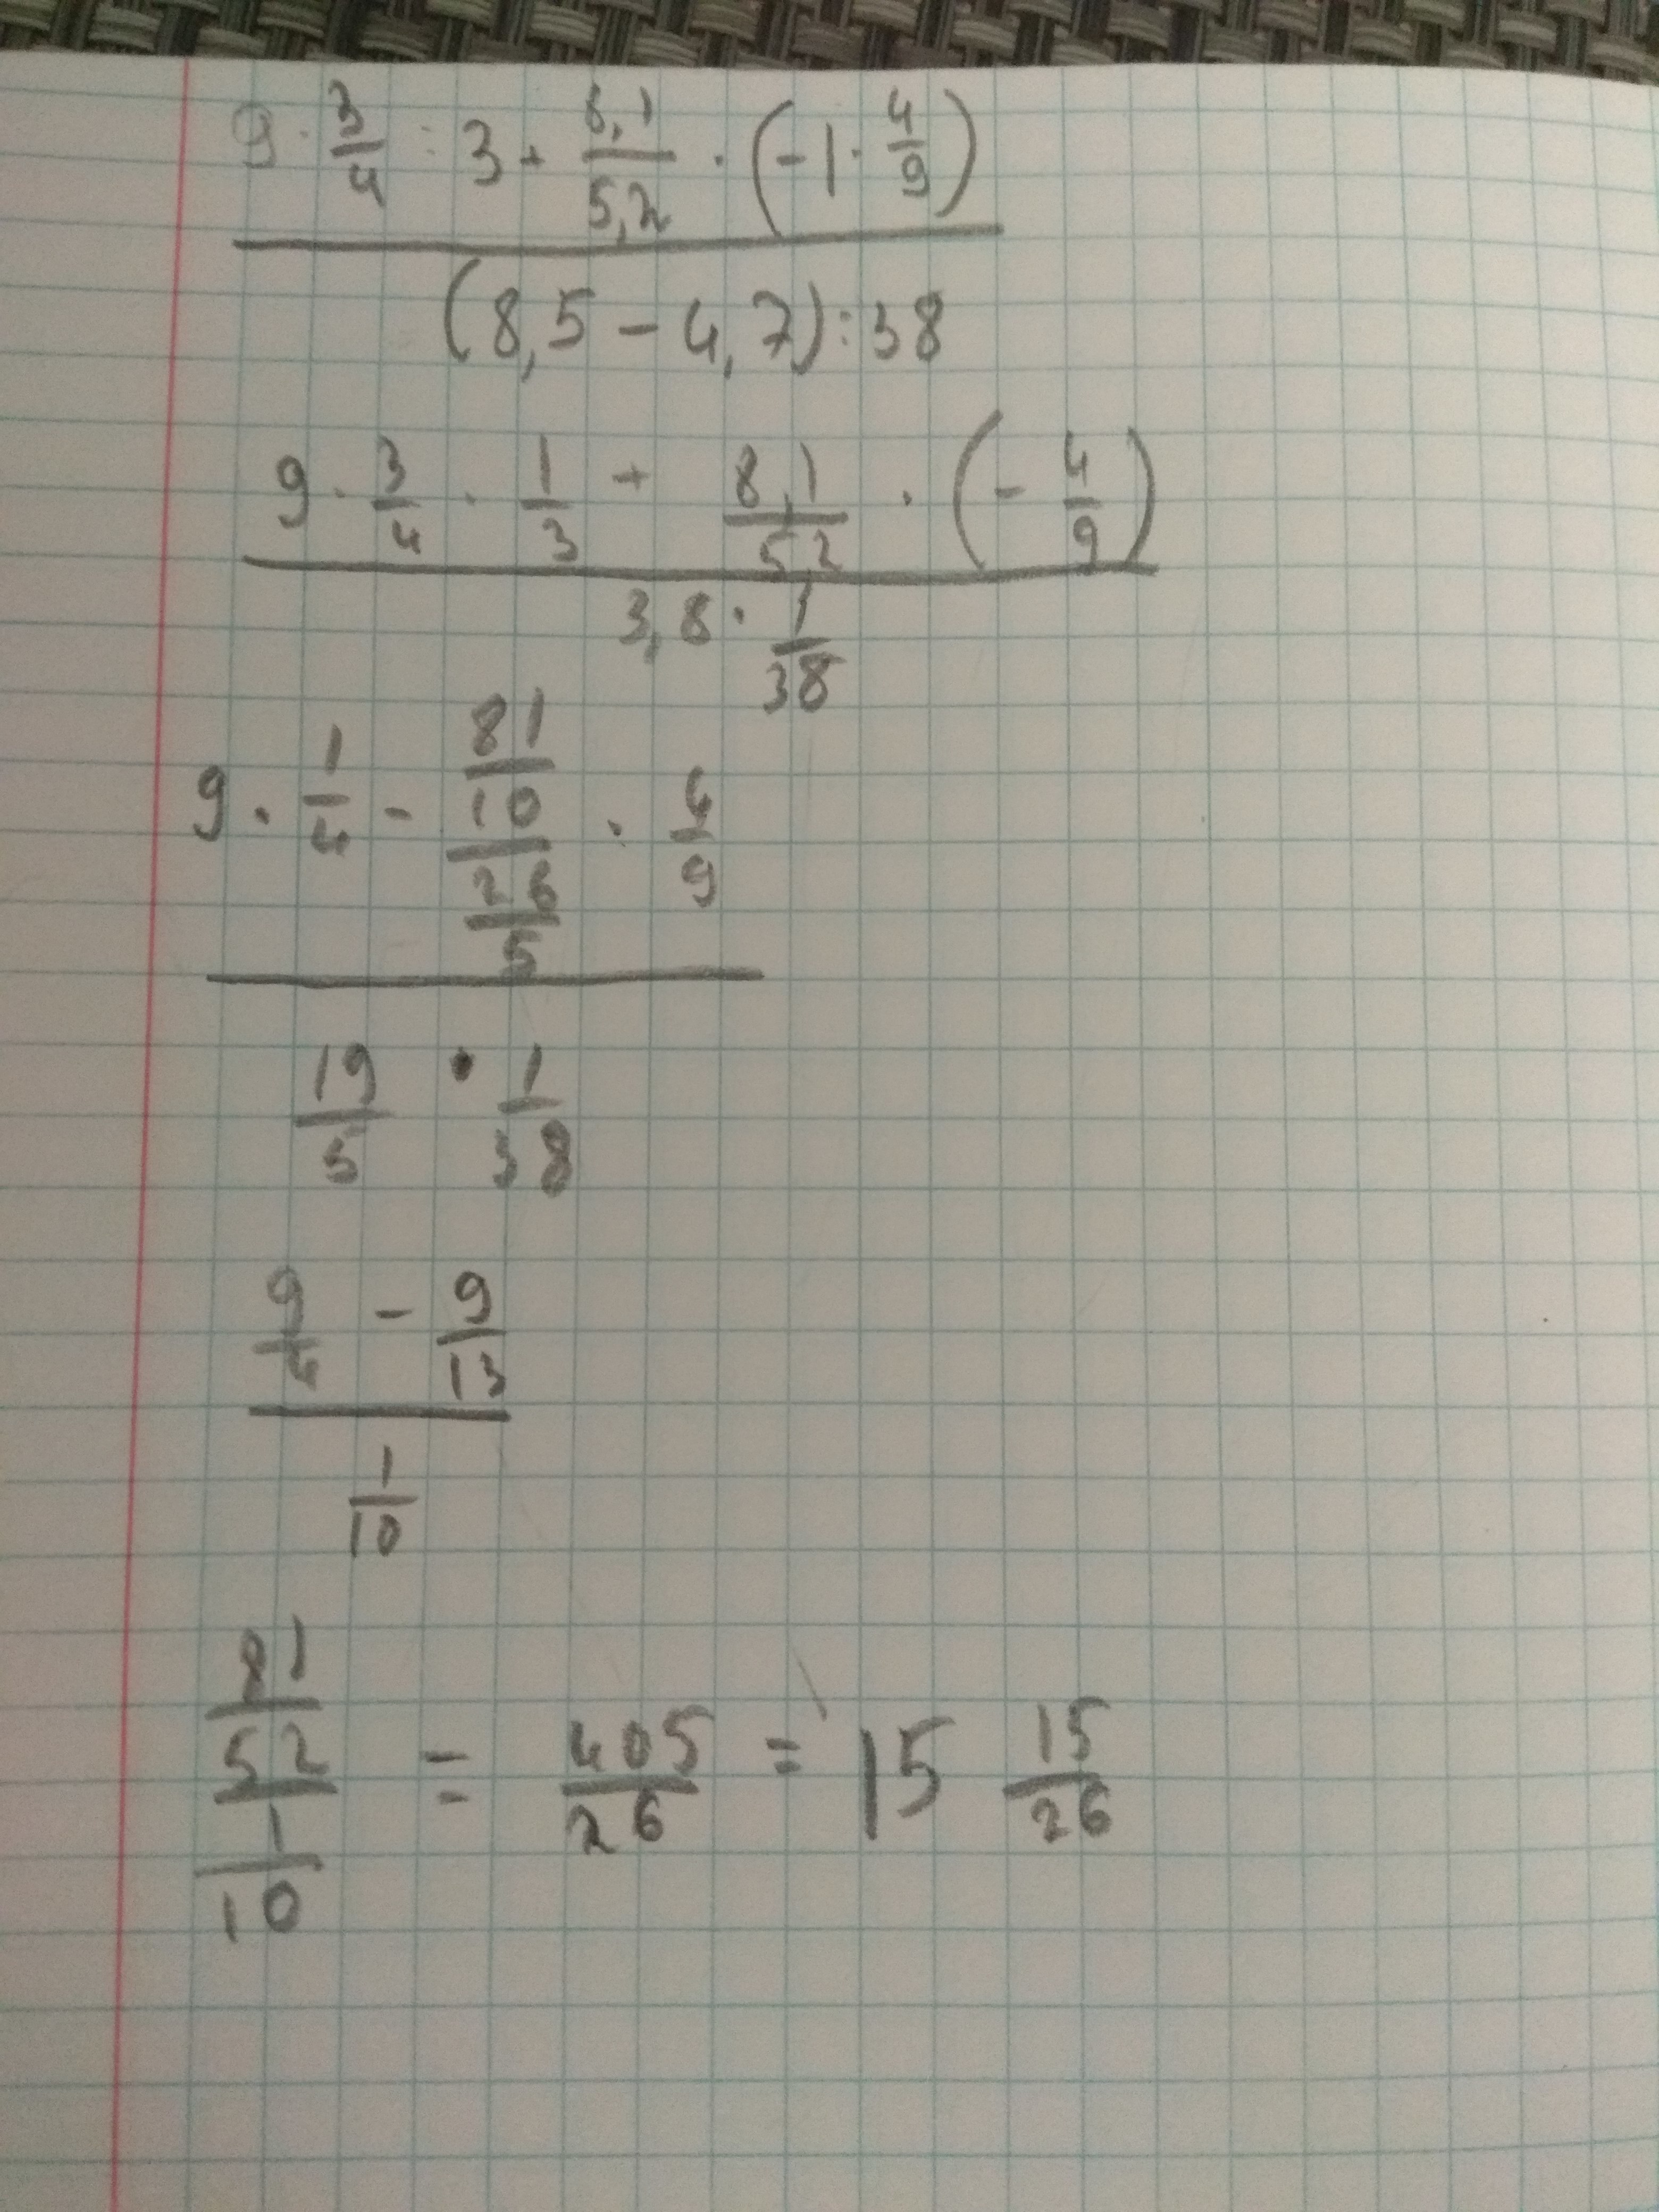 9 · 3/4 : 3 + 8,1/5,2 · (-1 · 4/9)
(8,5 - 4,7) : 38
9 · 3/4 · 1/3 + 8,1/5,2 · (- 4/9)
3,8 · 1/38
9 · 1/4 - 81/10 / 26/5 · 4/9
19/5 · 1/38
9/4 - 9/13
1/10
81/52 / 1/10 = 405/26 = 15 15/26